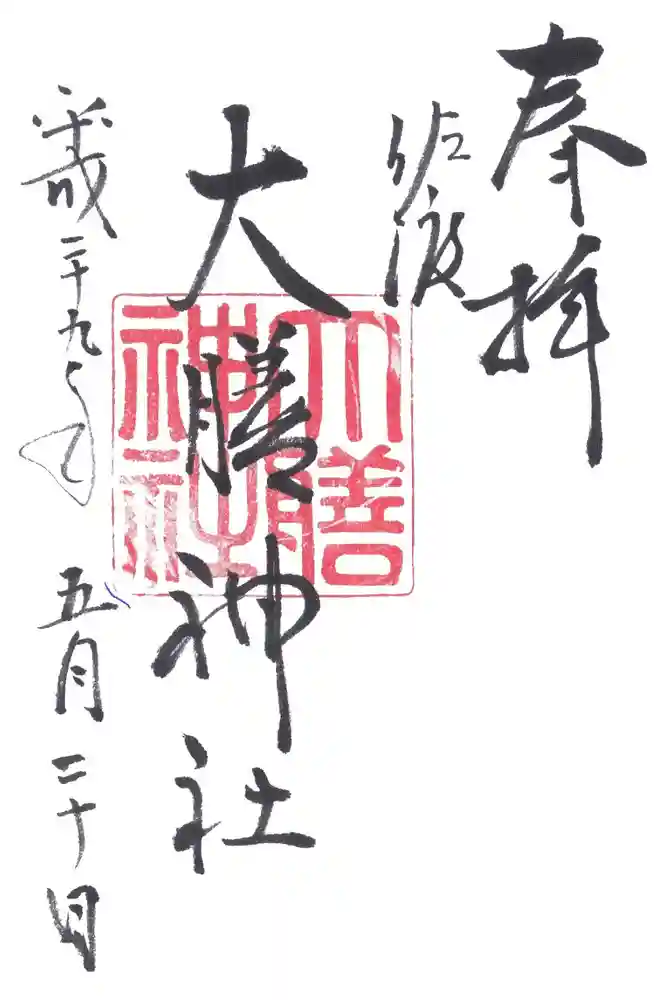 奉拝
佐渡
大膳神社
平成二十九年
五月二十日
大膳神社